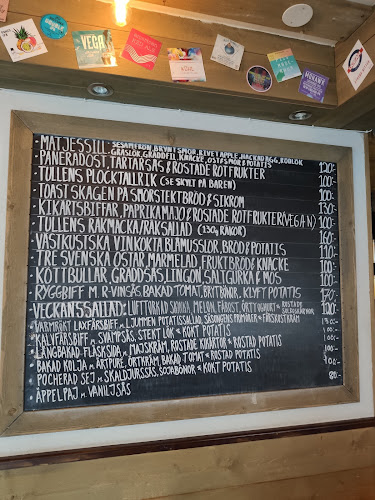 VEGA
MATJESSILL: SESAMFRÖN, BRYNT SMÖR, RIVET ÄPPLE, HACKAD ÄGG, RÖDLÖK
GRÄSLÖK, GRÄDDFIL, KNÄCKE, OST & SMÖR & POTATIS
PANERAD OST, TARTARSÅS & ROSTADE ROTFRUKTER 120:-
TULLENS PLOCKTALLRIK (SE SKYLT PÅ BAREN) 100:-
TOAST SKAGEN PÅ SMÖRSTEKT BRÖD & SIKROM
KIKÄRTSBIFFAR, PAPRIKAMAJO & ROSTADE ROTFRUKTER (VEGAN) 100:-
TULLENS RÄKMACKA/RÄKSALLAD (130g RÄKOR)
VÄSTKUSTSKA VINKOKTA BLÅMUSSLOR, BRÖD & POTATIS 160:-
TRE SVENSKA OSTAR, MARMELAD, FRUKTBRÖD & KNÄCKE
KÖTTBULLAR, GRÄDDSÅS, LINGON, SALTGURKA & MOS 100:-
RYGGBIFF M. R-VINSÅS, BAKAD TOMAT, BRYTBÖNOR, KLYFTPOTATIS 170:-
VECKANS SALLAD: LUFTTORKAD SKINKA, MELON, FÄRKST, ÖRTYOGHURT & ROSTADE
SOLROSKÄRNOR
VARMRÖKT LAXFÄRSBIFF M. LJUMMEN POTATISSALLAD, SÄSONGENS PRIMÖRER & FÄRSKOSTKRÄM
KALVFÄRSBIFF M. SVAMPSÅS, STEKT LÖK & KOKT POTATIS
LÅNGBAKAD FLÄSKSIDA M. MAJSKRÄM, ROSTADE KIKÄRTOR & ROSTAD POTATIS
BAKAD KOLJA M. ÄRTPURÉ, ÖRTKRÄM, BAKAD TOMAT & ROSTAD POTATIS
POCHERAD SEJ M. SKALDJURSSÅS, SOJABÖNOR & KOKT POTATIS
ÄPPELPAJ M. VANILJSÅS 80:-